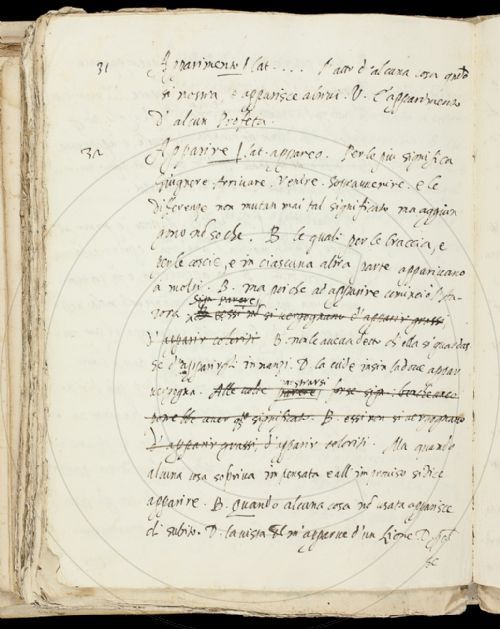 31 Apparimento / lat. . . . l'atto d'alcuna cosa
si mostra, e apparisce altrui. V. l'apparimento
d'alcun Profeta.
32 Apparire / lat. appareo. Per le piu significa
Giugnere. Arrivare. Venire. Sopravvenire. e le
differenze non mutan mai tal significato ma aggiun
gono no so che. B. le quali per le braccia, e
per le coscie, e in ciascuna altra parte apparivano
à molti. B. ma poiche ad apparire cominciò l'Au
rora essi no si vergognano d'apparir grassi
d'apparir coloriti B. non le aveva detto ch'ella si guardas
se d'apparirgli innanzi. D. la
vergogna. Alle volte mostrarsi forse sign.
avere significato. B. essi non si vergognano
d'apparir grassi, d'apparir coloriti. Ma quando
alcuna cosa sopriva impensata e all'improviso si dice
apparire. B. Quando alcuna cosa no usata apparisce
di subito. D. la vista m'apparve d'un Lione D.